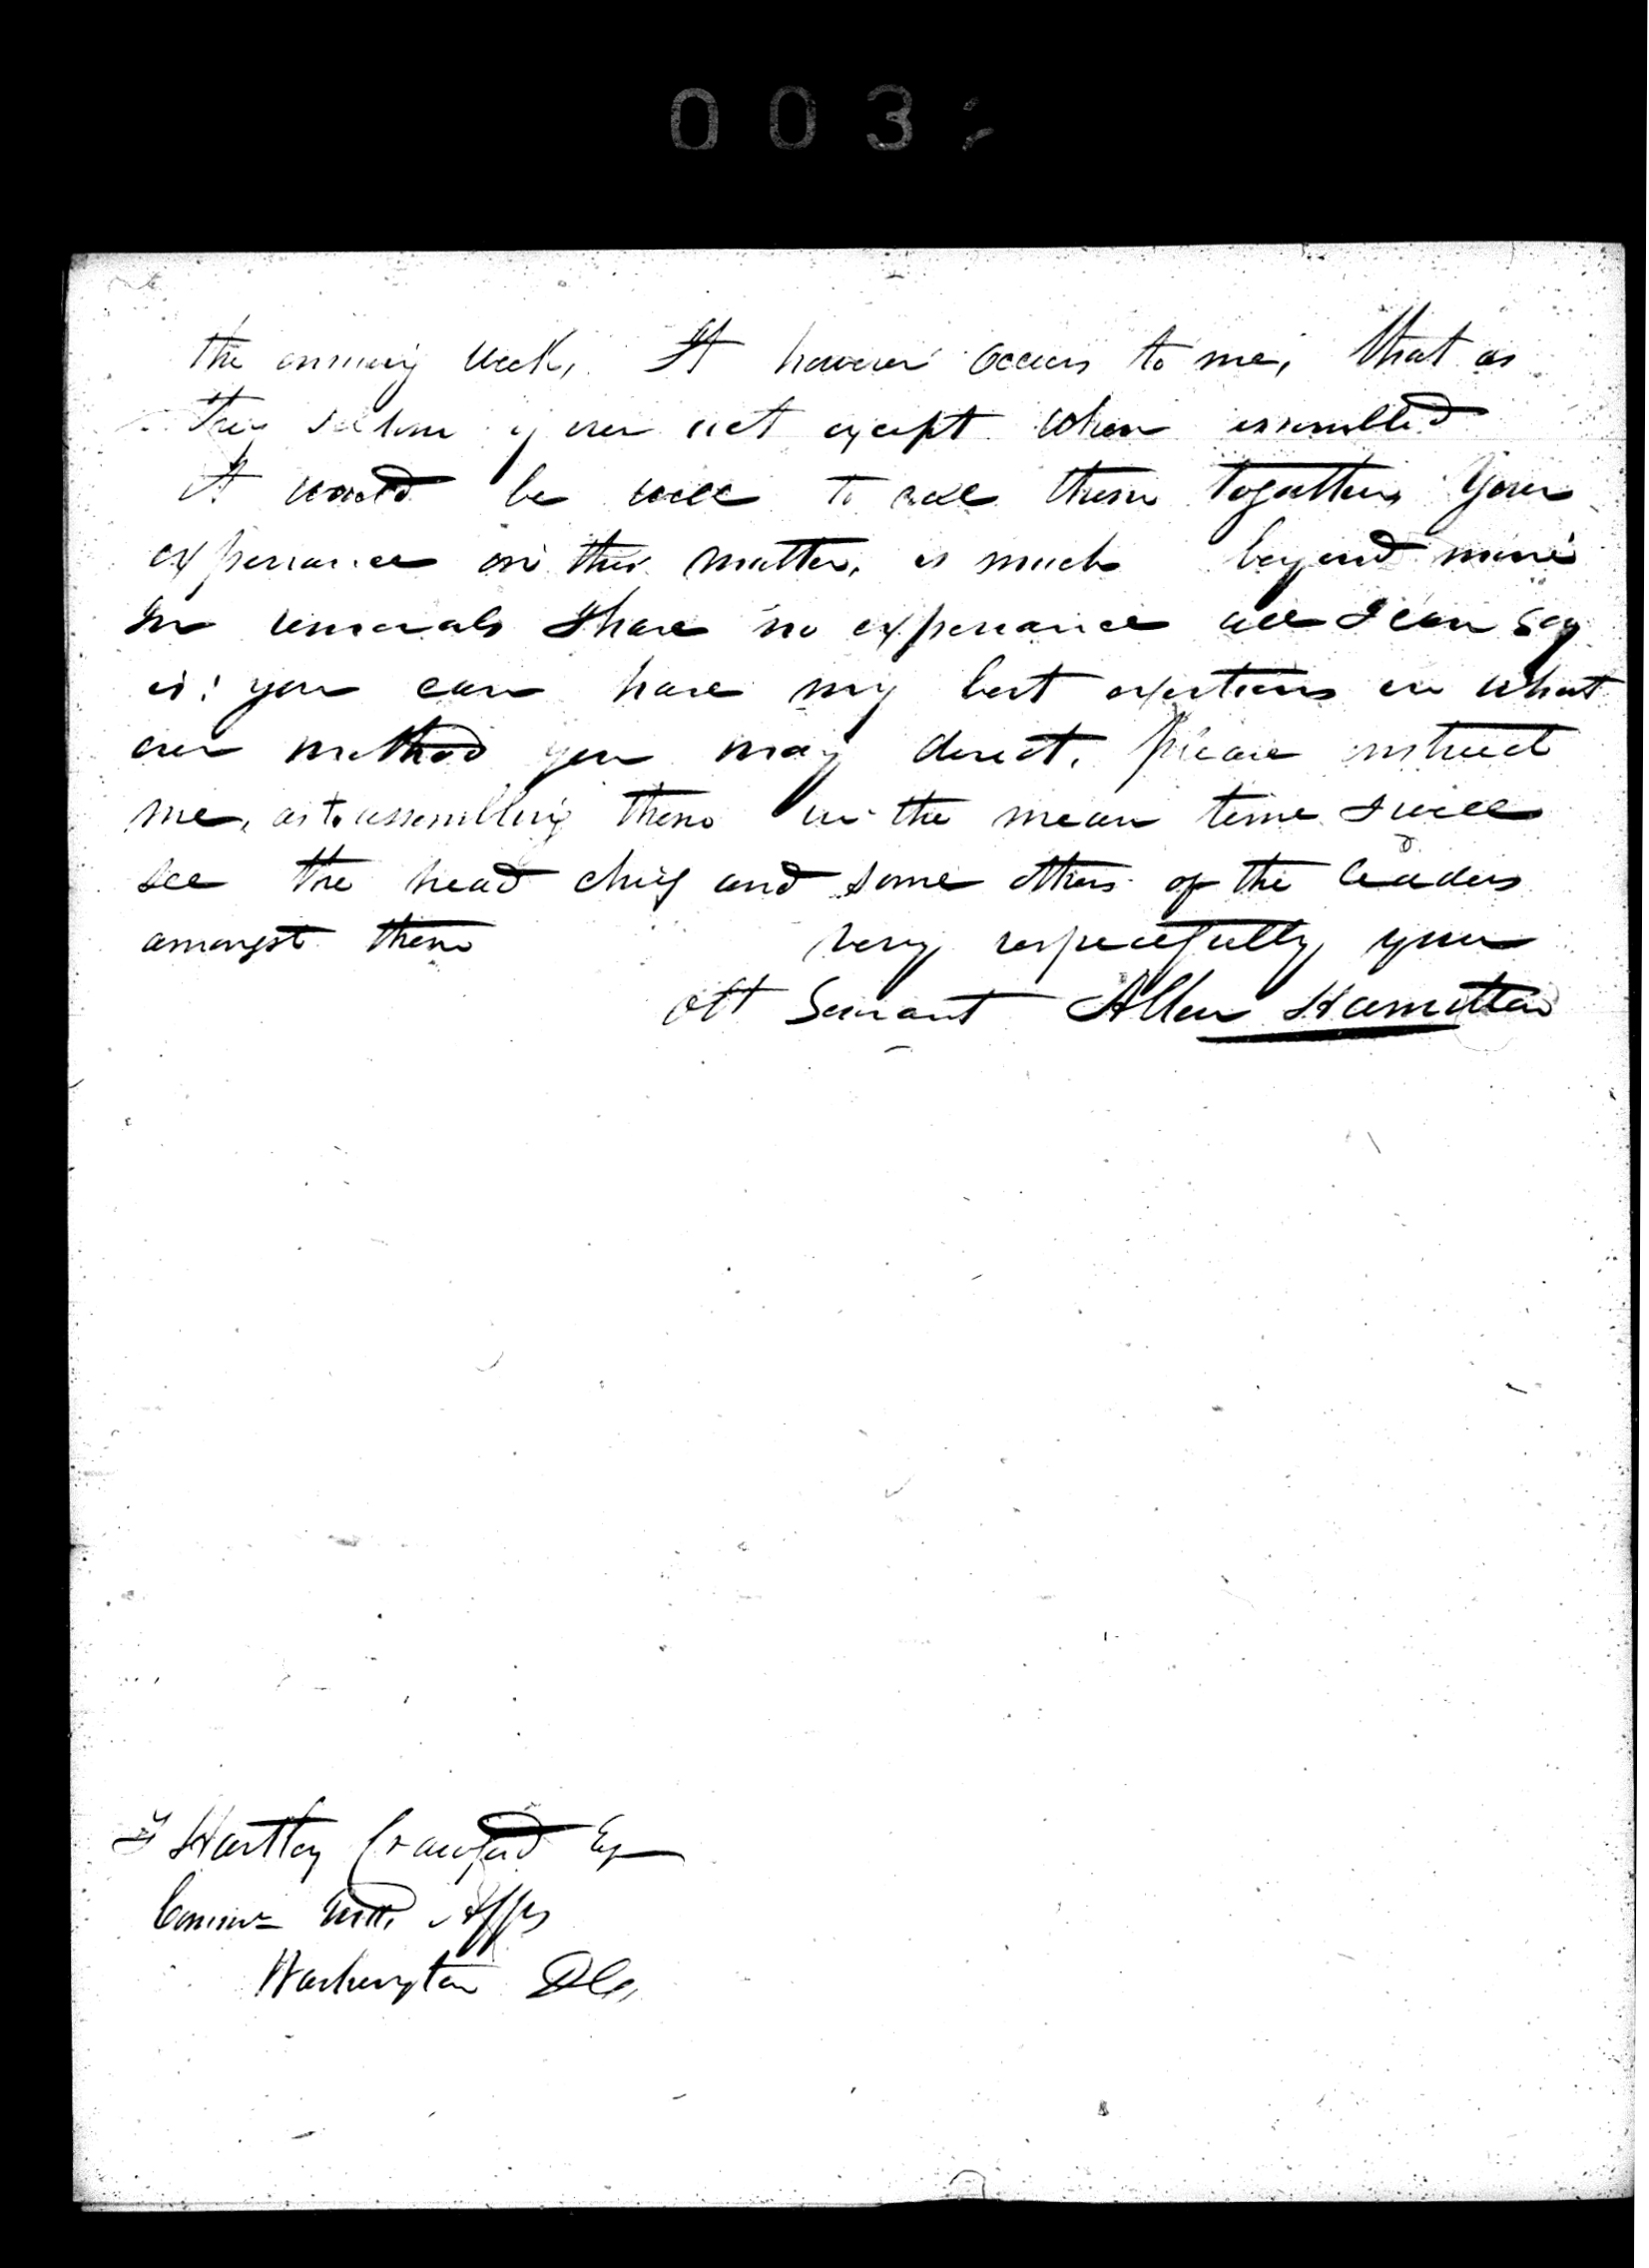 003
the ensuing week, It however occurs to me, that as
they seldom if ever act except when assembled
It would be well to call them together, Your
experiance in this matter, is much beyond mine
In removals I have no experiance all I can say
is: you can have my best exertions in what
ever method you may direct, please instruct
me, as to assembling them in the mean time I will
see the head chief and some others of the leaders
amongst them very respectfully your
obt Servant Allen Hamilton
T Hartley Crawford Esq
Commr Ind. Affrs
Washington DC,